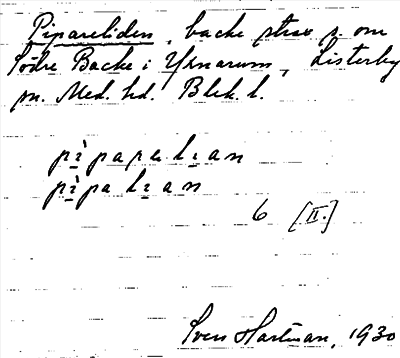 Pipareliden, backe strax s. om
Södre Backe i Yxnarum, Listerby
sn. Med. hd. Blek. l.
pìpaparlıan
pìpalıan
6 [II.]
Sven Hartman, 1930